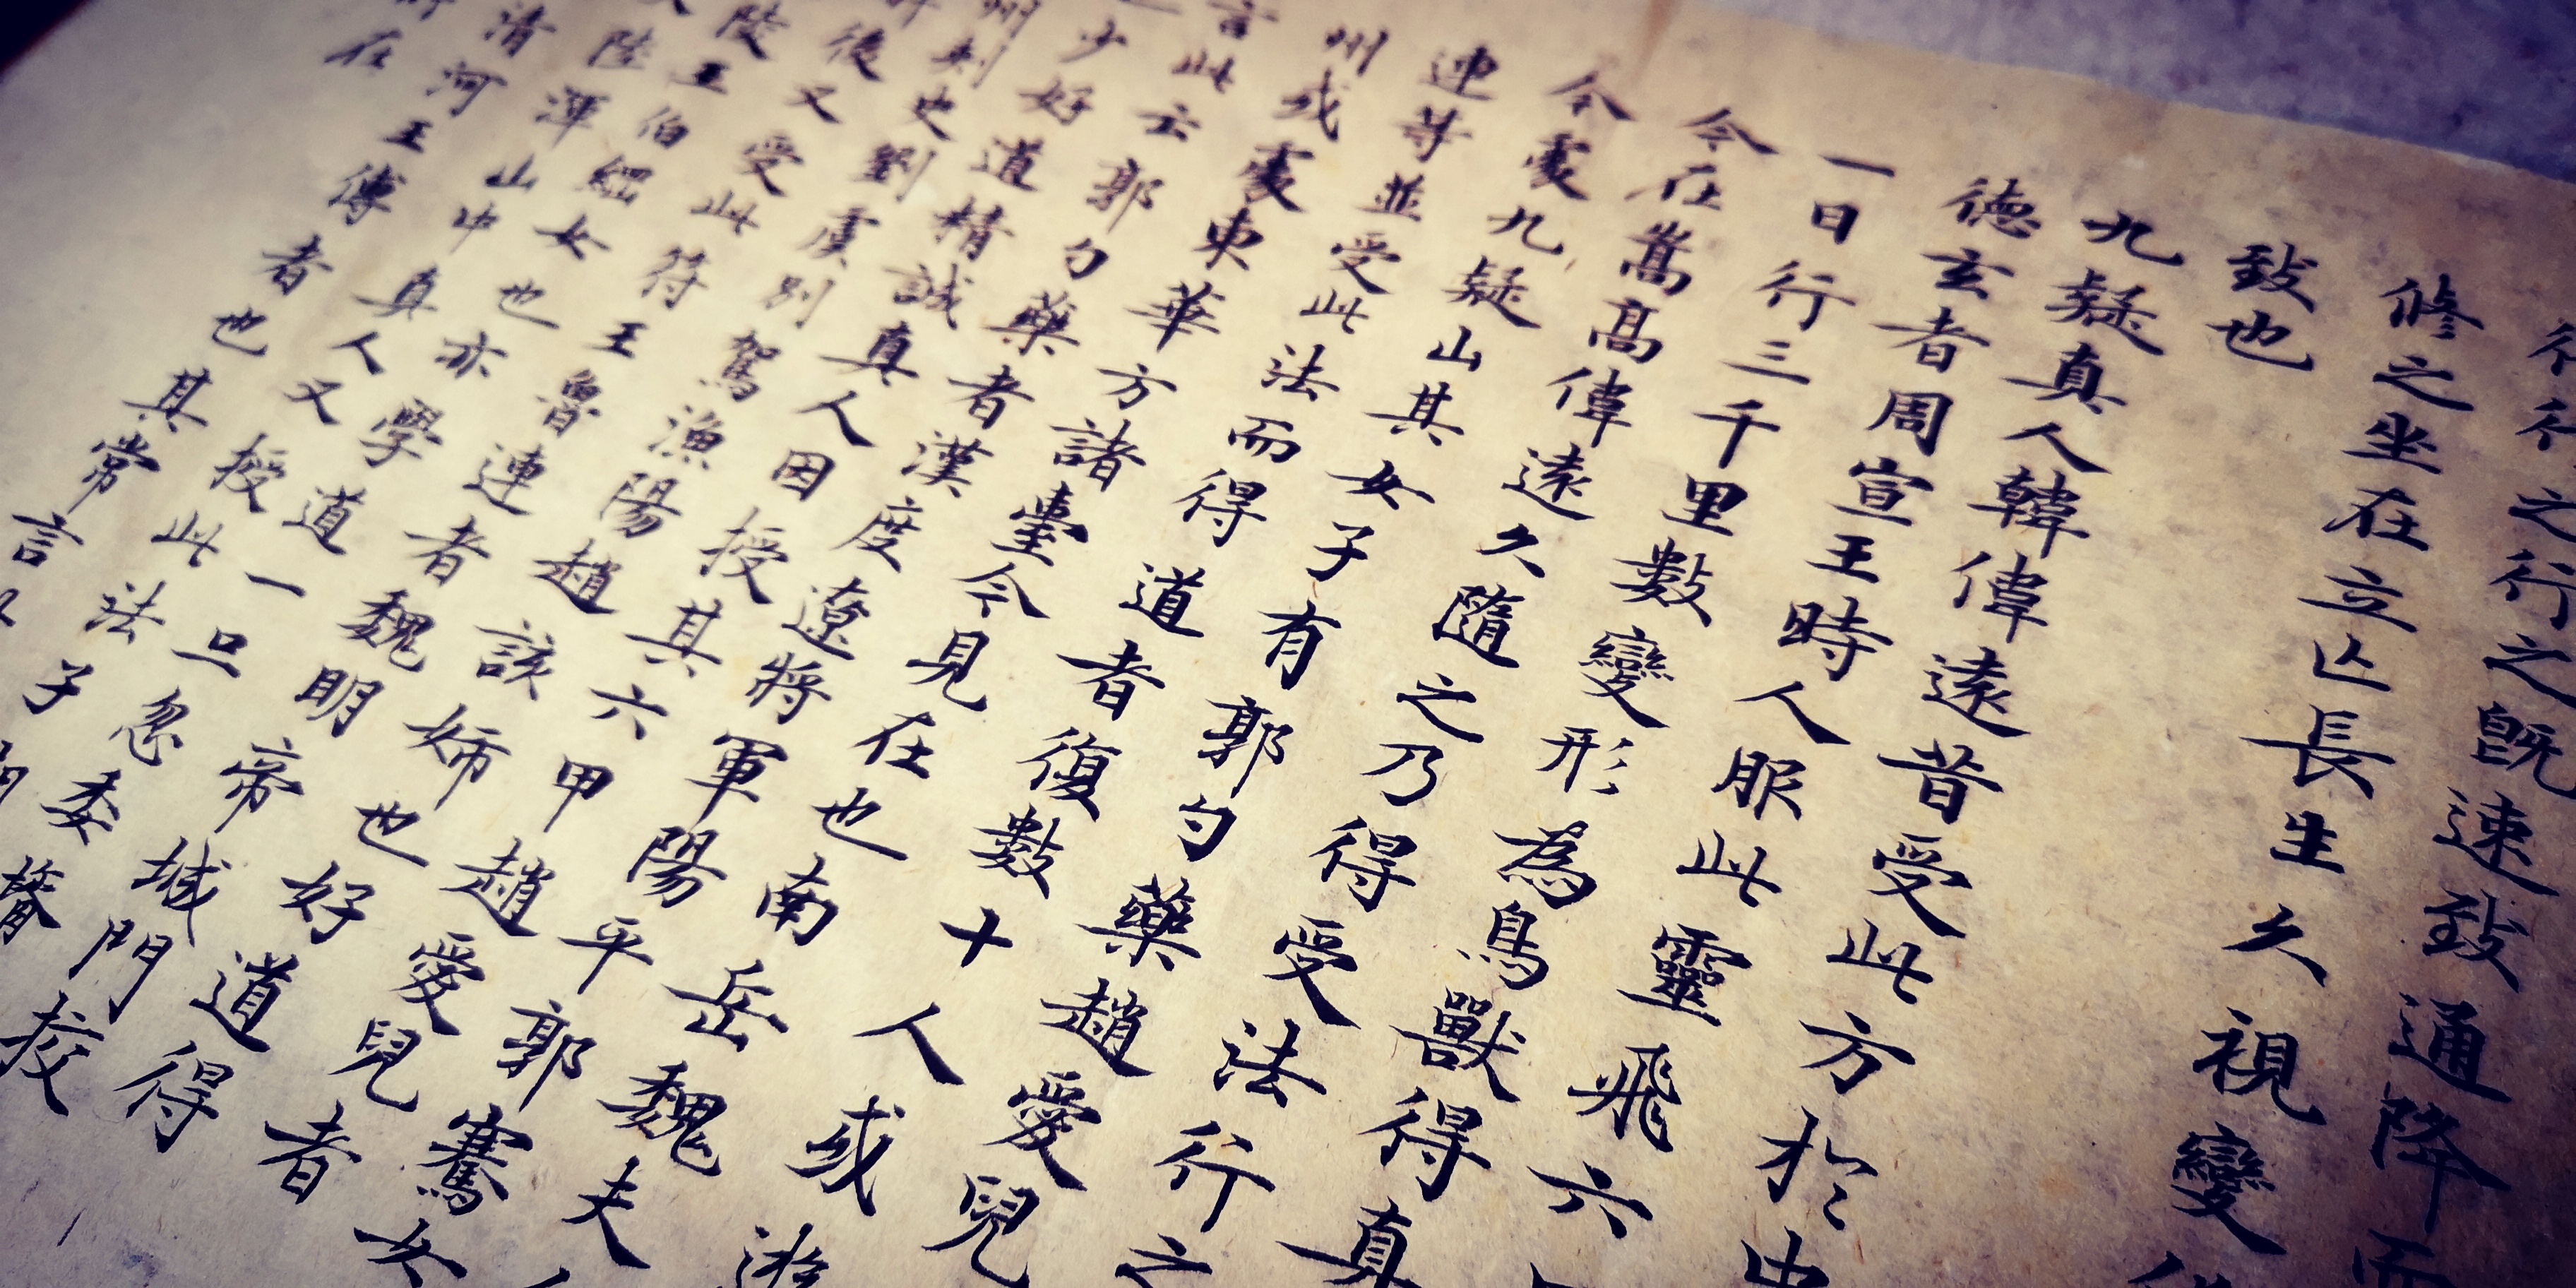 之行之既速致通降而
修之坐在立亡長生久視變
致也
九疑真人韓偉遠昔受此方於中
德玄者周宣王時人服此靈飛六
一日行三千里數變形為鳥獸得真
今在嵩高偉遠久隨之乃得受法行之
今處九疑山其女子有郭勺藥趙愛兒
連等並受此法而得道者復數十人或游
州或處東華方諸臺今見在也南岳魏夫人
言此云郭勺藥者漢度遼將軍陽平郭騫女
少好道精誠真人因授其六甲趙愛兒者
州刺史劉虞別駕漁陽趙該姊也好道得
後又受此符王魯連者魏明帝城門校
陵王伯綱女也亦學道一旦忽委婿
陸渾山中真人又授此法子
清河王傳者也其常言
在